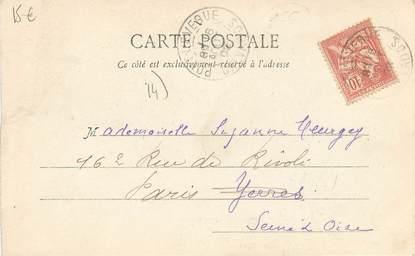 15€
CARTE POSTALE
Ce côté est exclusivement réservé à l'adresse
14)
Mademoiselle Suzanne Meurgey
162 Rue de Rivoli
Paris Yerres
Seine & Oise